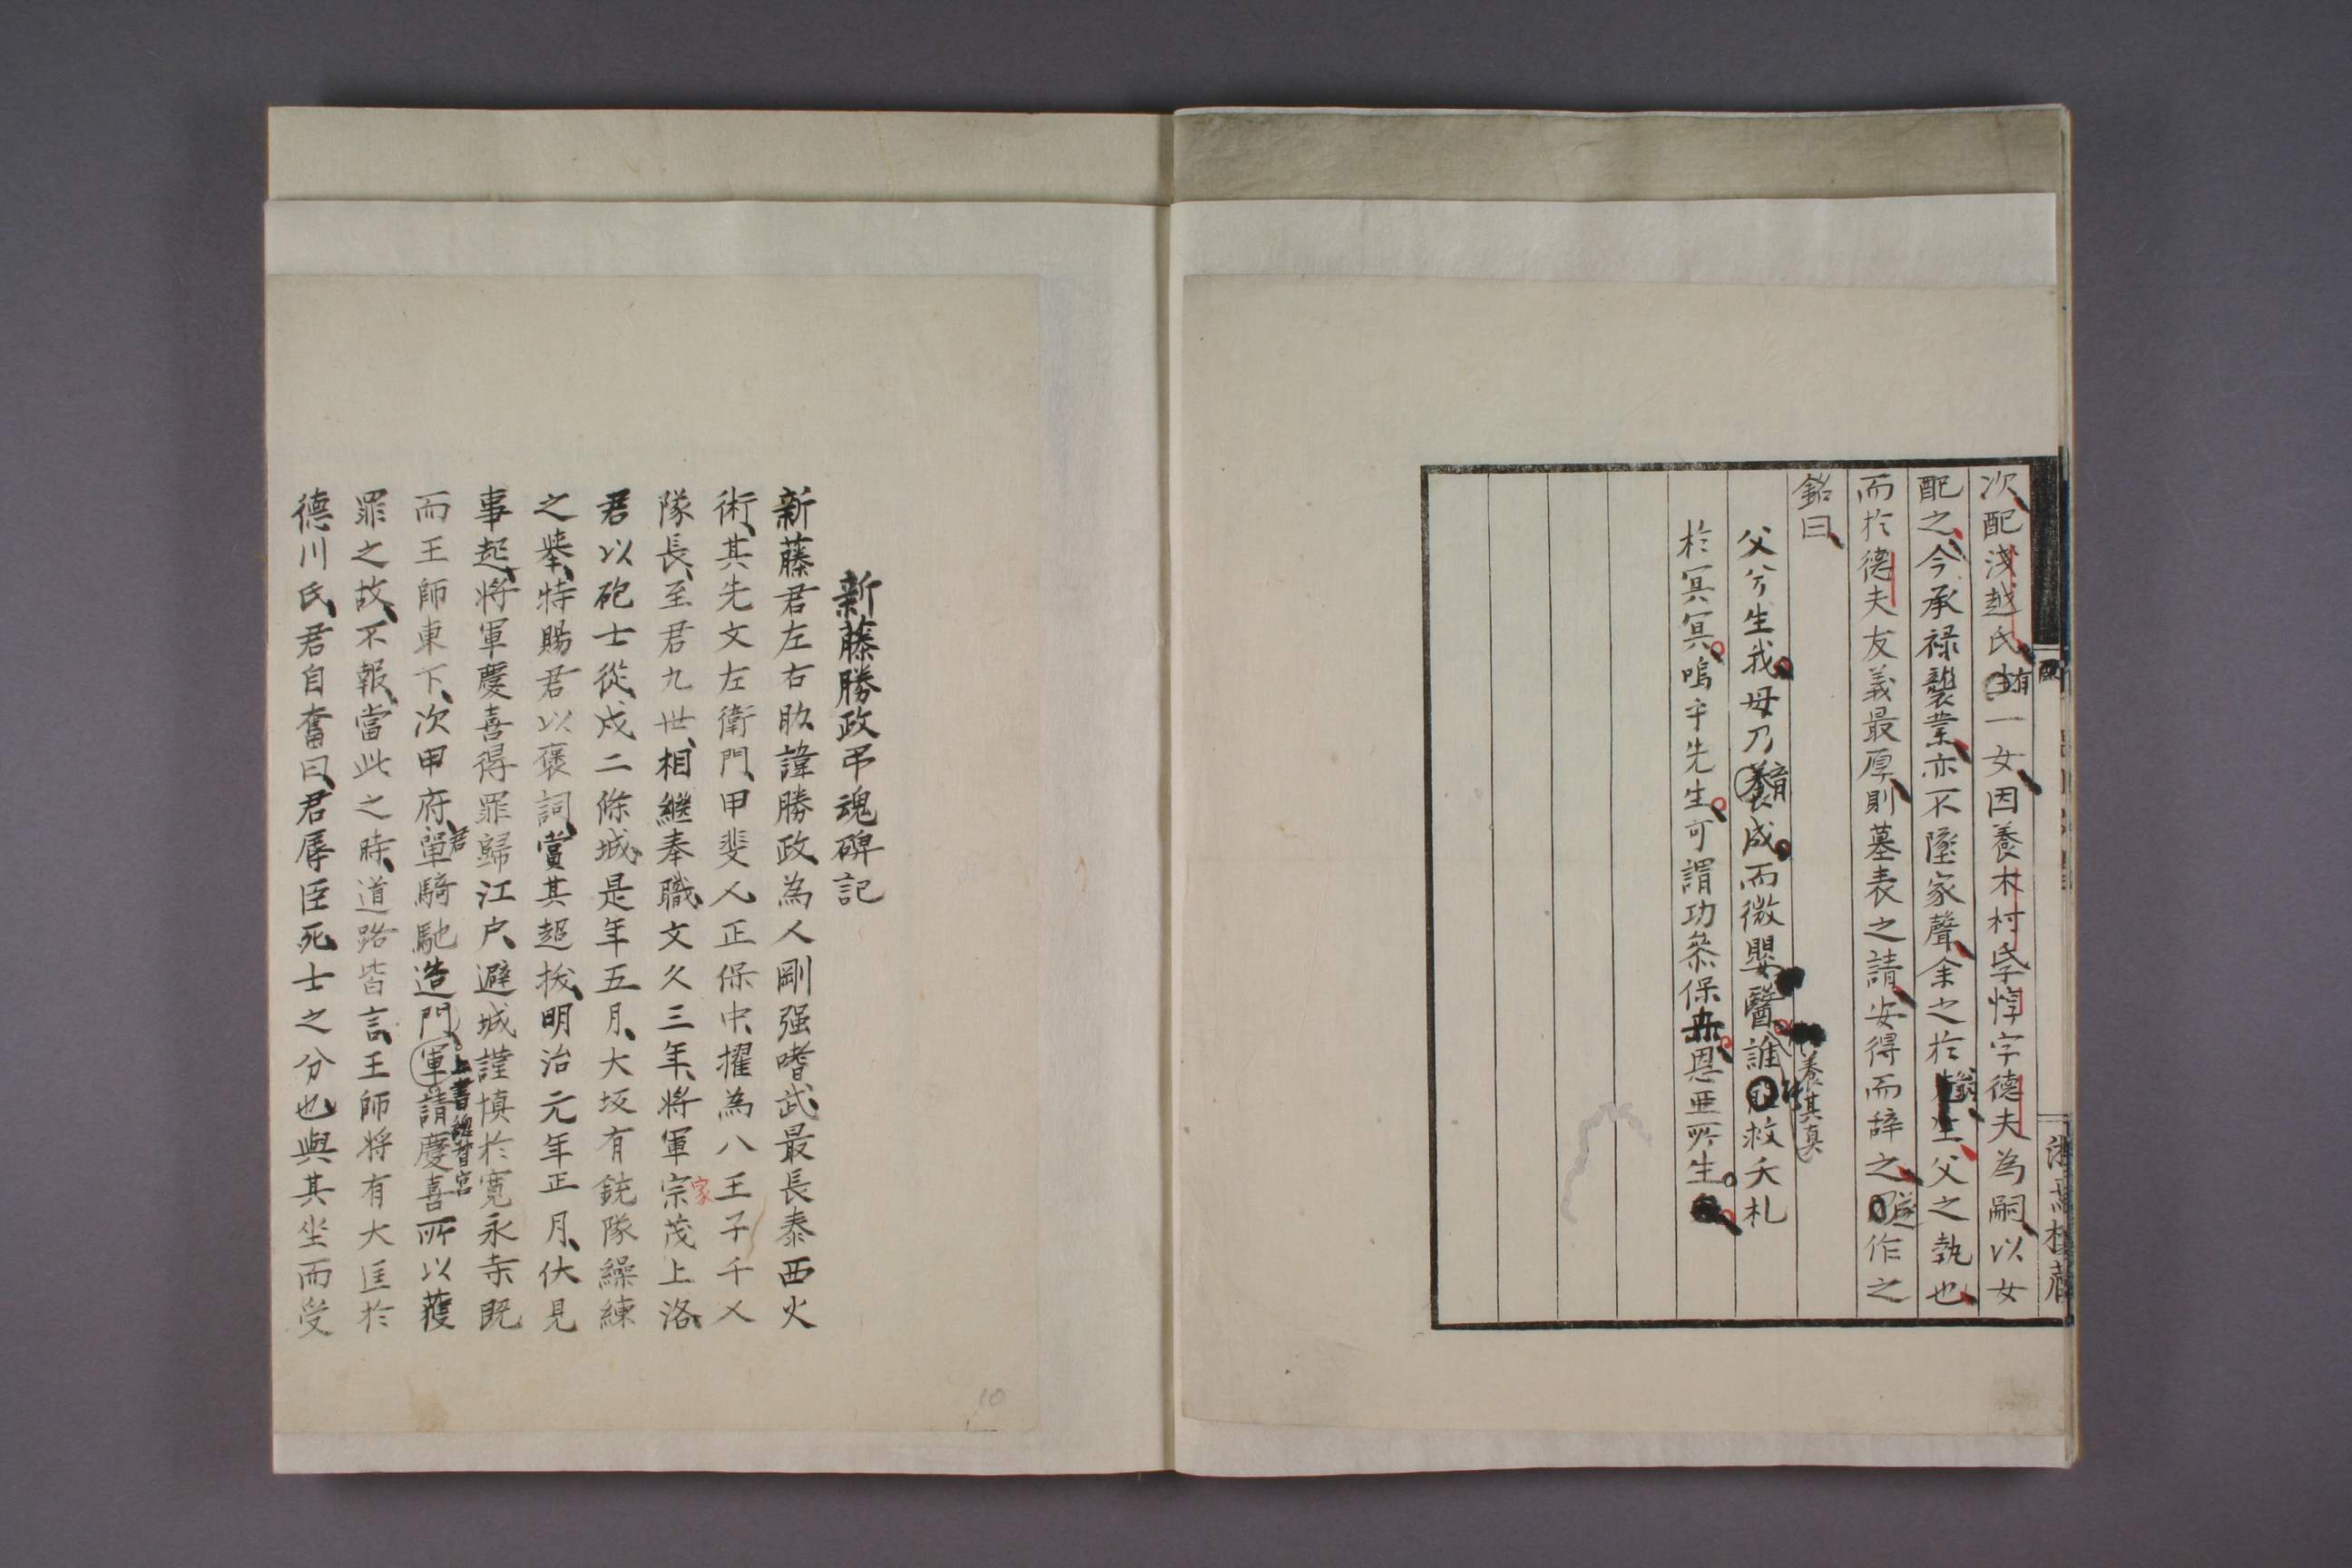 次配淺越氏有一女因養木村氏字惇字德夫為嗣以女
配之今承禄襲業亦不墜家聲余之於翁父之執也
而於德夫友義最厚則墓表之請安得而辞之遂作之
銘曰
父兮生我母乃育成而微嬰醫誰能救夭札
養其真
於冥冥嗚乎先生可謂功叅保恩亜所生
新藤勝政弔魂碑記
新藤君左右助諱勝政為人剛强嗜武最長泰西火
術其先文左衛門甲斐人正保中擢為八王子千人
隊長至君九世相継奉職文久三年将軍宗茂上洛
家
君以砲士從戍二條城是年五月大坂有銃隊繰練
之挙特賜君以褒詞賞其超抜明治元年正月伏見
事起将軍慶喜得罪歸江戸避城謹慎於寛永寺既
而王師東下次甲府君單騎馳造軍門上書總督宮請慶喜所以獲
罪之故不報當此之時道路皆言王師将有大匡於
德川氏君自奮曰君辱臣死士之分也與其坐而受
10